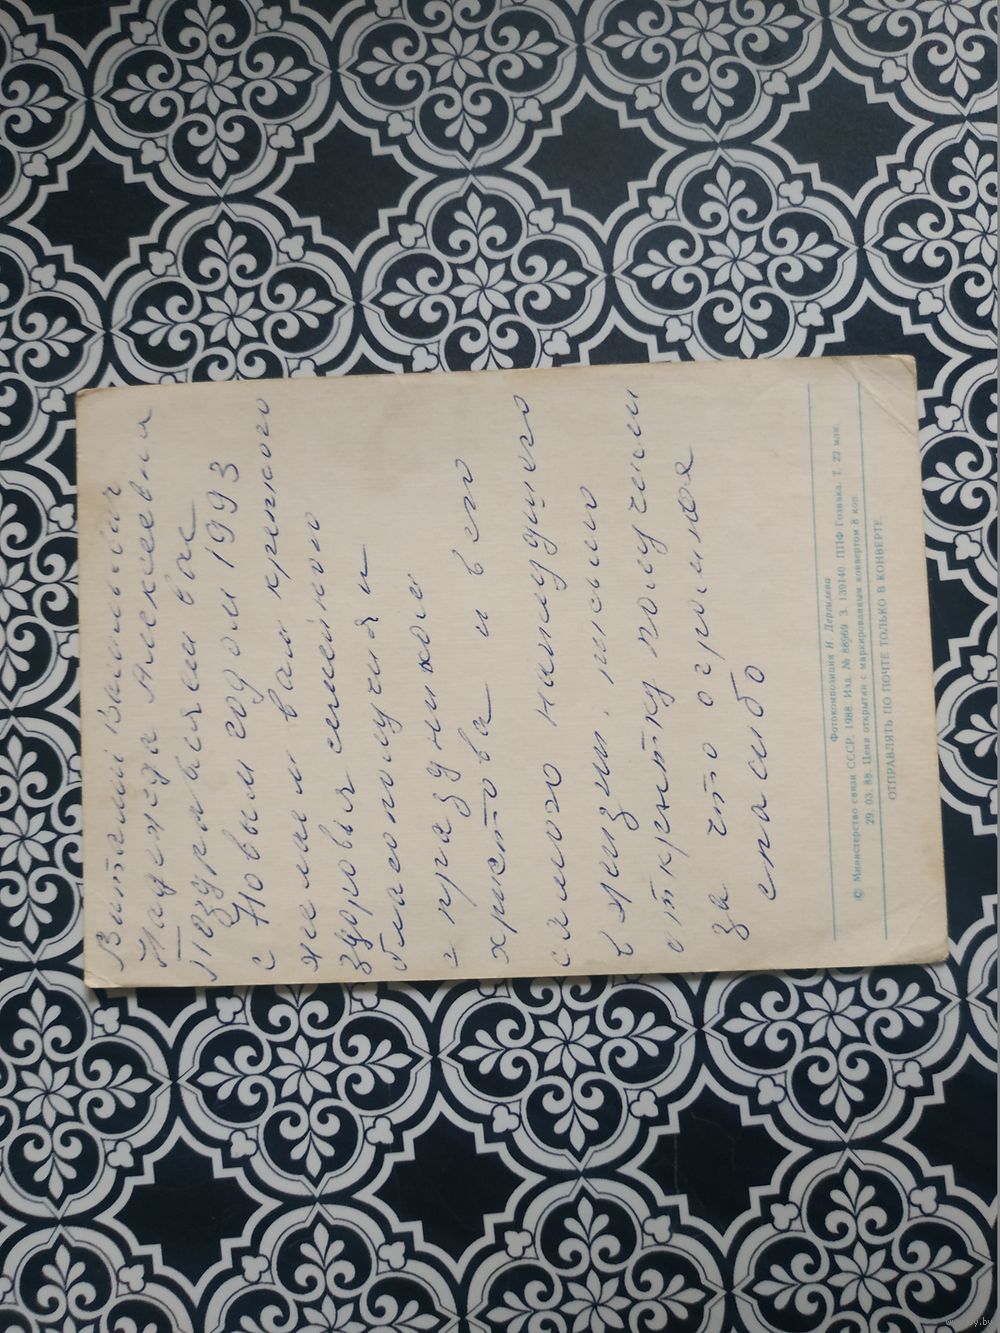 Виталий Васильевич
Надежда Алексеевна
Поздравляем вас
с Новым годом 1993
желаем вам крепкого
здоровья семейного
благополучия и
с праздником
христова и всего
самого наилудшего
в жизни. письмо
открытку получили
за что огромное
спасибо
Фотокомпозиция И. Дергилева
© Министерство связи СССР, 1988. Изд. № 88969. З. 139140. ППФ Гознака. Т. 22 млн.
29. 03. 88. Цена открытки с маркированным конвертом 8 коп.
ОТПРАВЛЯТЬ ПО ПОЧТЕ ТОЛЬКО В КОНВЕРТЕ